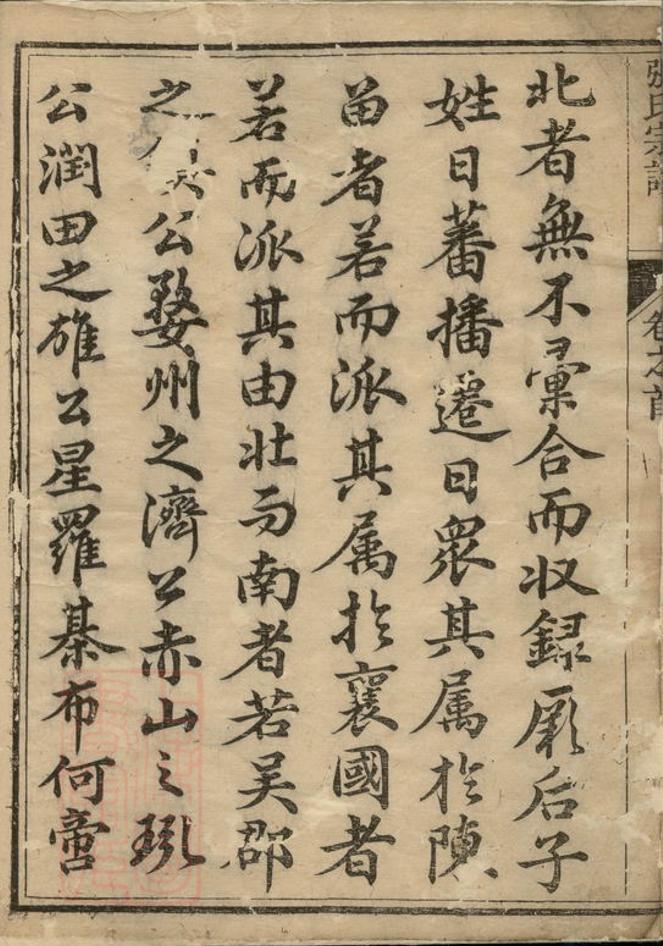 張氏宗譜 卷之首
北者無不彙合而収録厥后子
姓日蕃播遷日衆其属扵陳
畄者若而派其属扵襄國者
若而派其由北而南者若吴郡
之公婺州之濟公赤山之
公潤田之雄公星羅棊布何啻